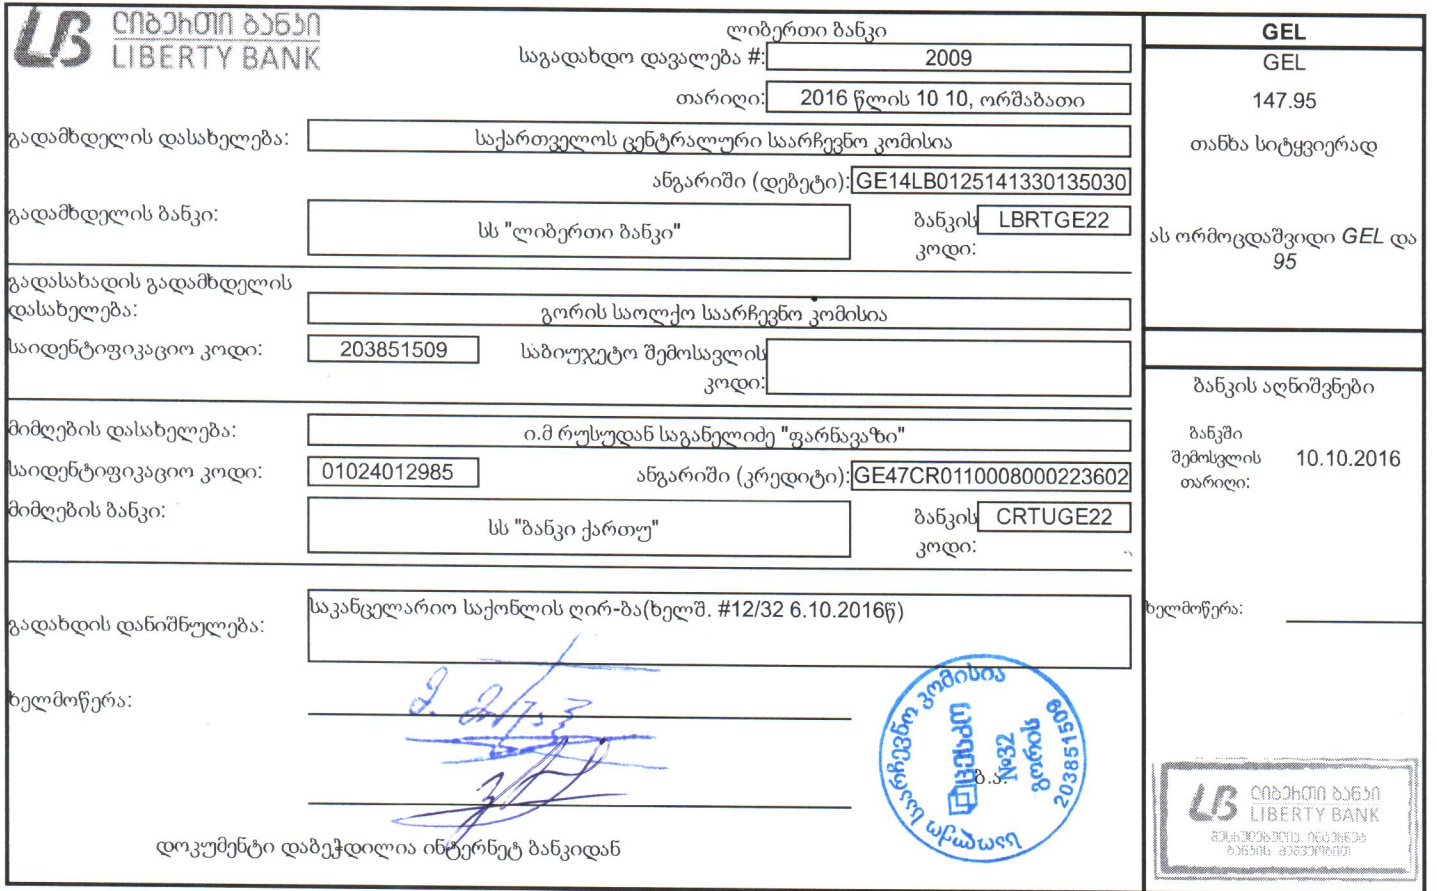 ლიბერთი ბანკი
LIBERTY BANK
ლიბერთი ბანკი
საგადახდო დავალება #: 2009
თარიღი: 2016 წლის 10 10, ორშაბათი
გადამხდელის დასახელება: საქართველოს ცენტრალური საარჩევნო კომისია
ანგარიში (დებეტი): GE14LB0125141330135030
გადამხდელის ბანკი: სს "ლიბერთი ბანკი" ბანკის კოდი: LBRTGE22
გადასახადის გადამხდელის
დასახელება: გორის საოლქო საარჩევნო კომისია
საიდენტიფიკაციო კოდი: 203851509 საბიუჯეტო შემოსავლის
კოდი:
მიმღების დასახელება: ი.მ რუსუდან საგანელიძე "ფარნავაზი"
საიდენტიფიკაციო კოდი: 01024012985 ანგარიში (კრედიტი): GE47CR0110008000223602
მიმღების ბანკი: სს "ბანკი ქართუ" ბანკის კოდი: CRTUGE22
გადახდის დანიშნულება: საკანცელარიო საქონლის ღირ-ბა(ხელშ. #12/32 6.10.2016წ)
ხელმოწერა:
ბ.ა.
დოკუმენტი დაბეჭდილია ინტერნეტ ბანკიდან
GEL
GEL
147.95
თანხა სიტყვიერად
ას ორმოცდაშვიდი GEL და
95
ბანკის აღნიშვნები
ბანკში
შემოსვლის 10.10.2016
თარიღი:
ხელმოწერა:
საოლქო საარჩევნო კომისია
ცესკო
№32
გორის
203851509
ლიბერთი ბანკი
LIBERTY BANK
შესრულებულია ინტერნეტ
ბანკის მეშვეობით